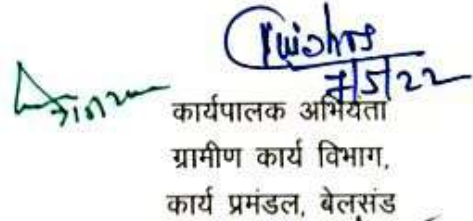 7/5/22
कार्यपालक अभियंता
ग्रामीण कार्य विभाग,
कार्य प्रमंडल, बेलसंड